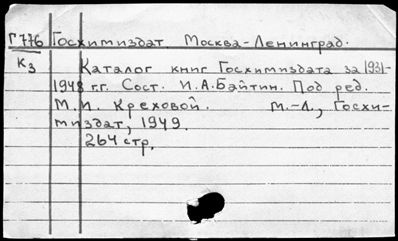 Г776 Госхимиздат Москва-Ленинград.
К3 Каталог книг Госхимиздата за 1931-
1948 г.г. Сост. И.А.Байтин. Под ред.
М.И. Креховой. М.-Л., Госхи-
миздат, 1949.
264 стр.